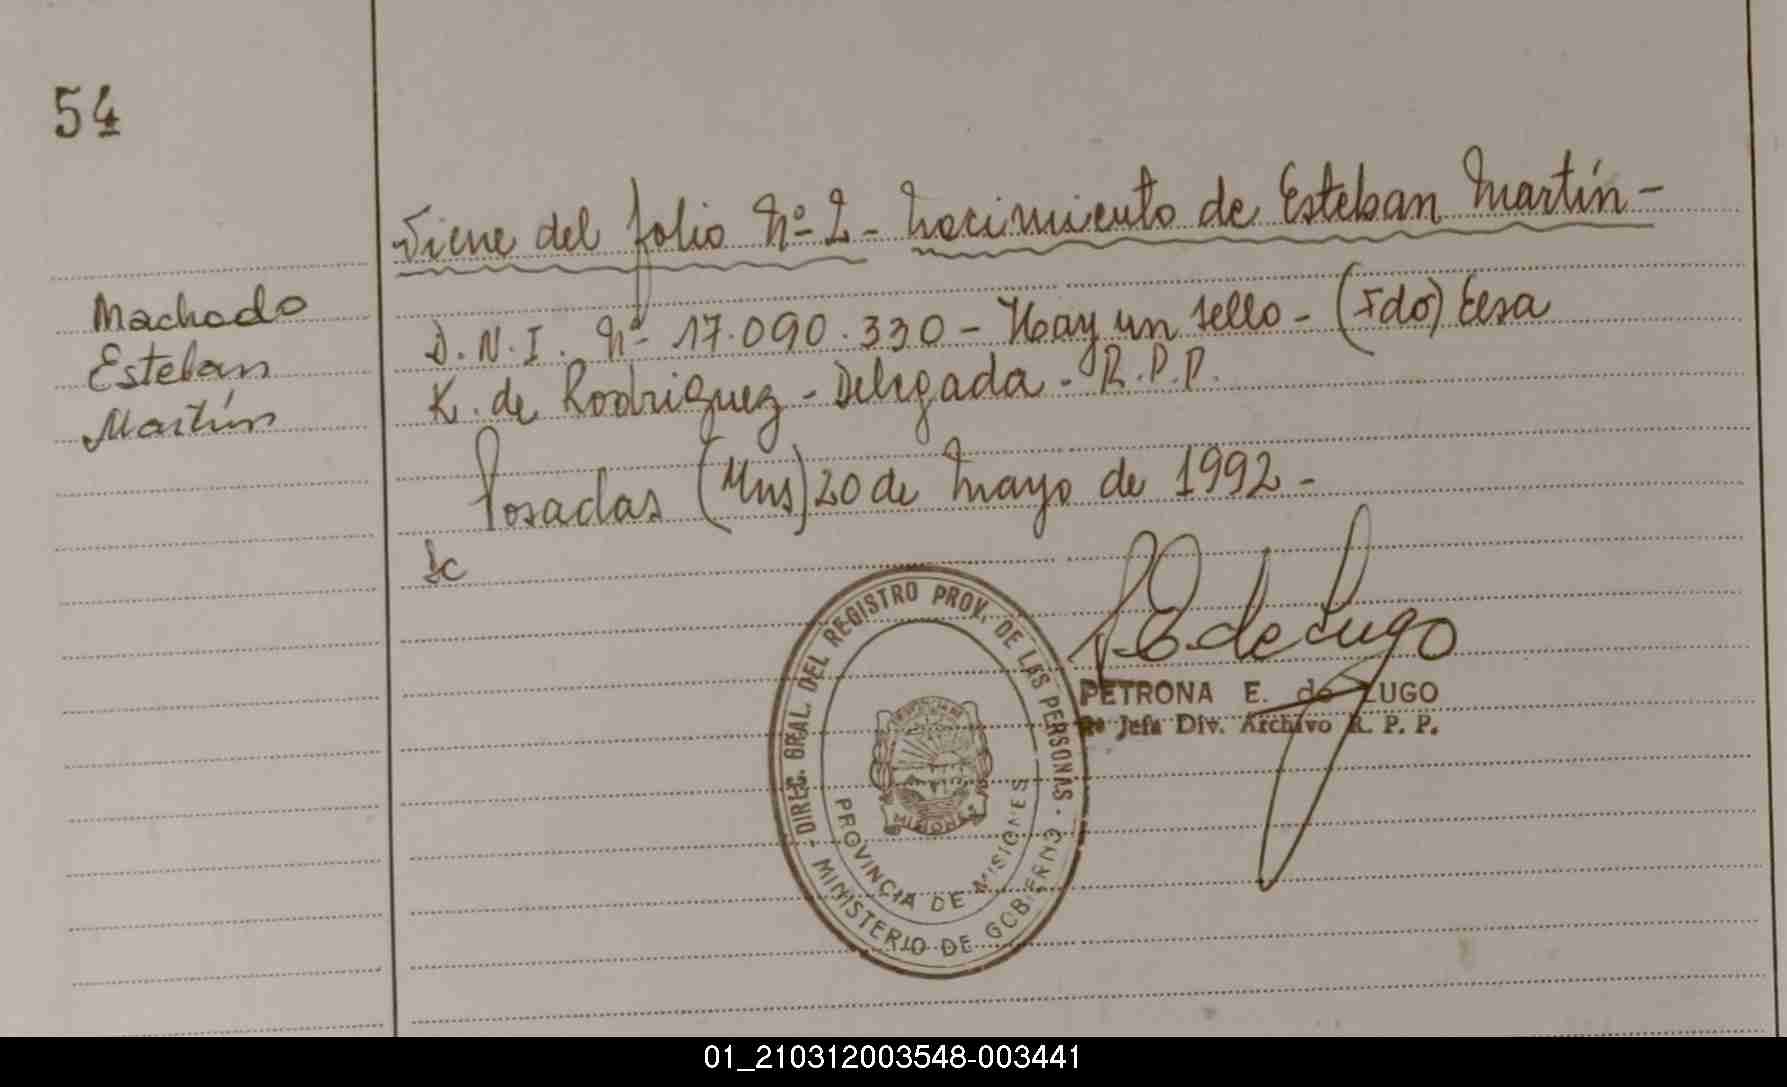 54
Viene del folio Nº 2 - Nacimiento de Esteban Martín -
Machado
Esteban
Martín
D.N.I. Nº 17.090.330 - Hay un sello - (Fdo) Elsa
K. de Rodriguez - Delegada - R.P.P.
Posadas (Mns) 20 de Mayo de 1992 -
Sc
P E de Lugo
PETRONA E. de LUGO
Jefa Div. Archivo R. P. P.
DIREC. GRAL. DEL REGISTRO PROV. DE LAS PERSONAS
MINISTERIO DE GOBIERNO
PROVINCIA DE MISIONES
MISIONES
01_210312003548-003441